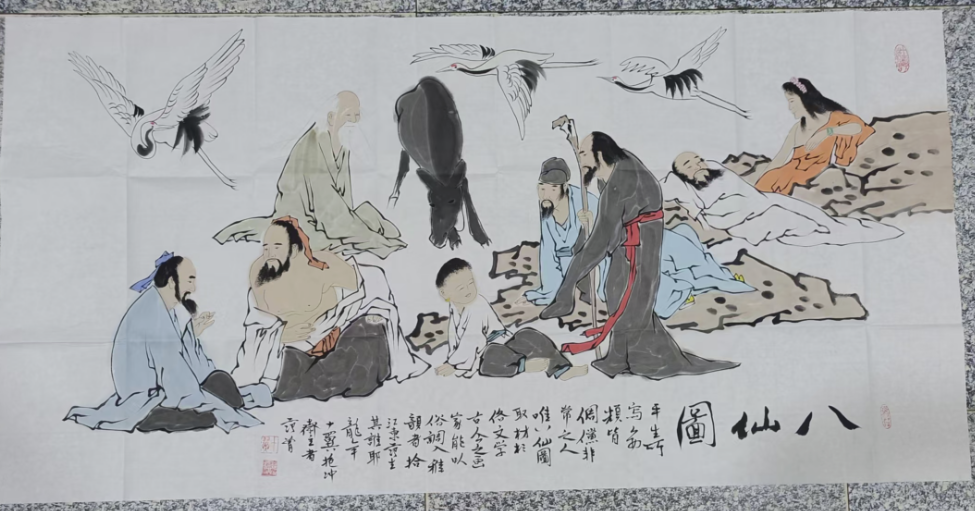 八仙圖
平生所
写
類皆
倜儻非
常之人
唯八仙圖
取材於
俗文字
古今之画
家能以
俗調入雅
韻者捨
江東范生
其誰耶
龍年
十翼抱冲
齋主者
范曾